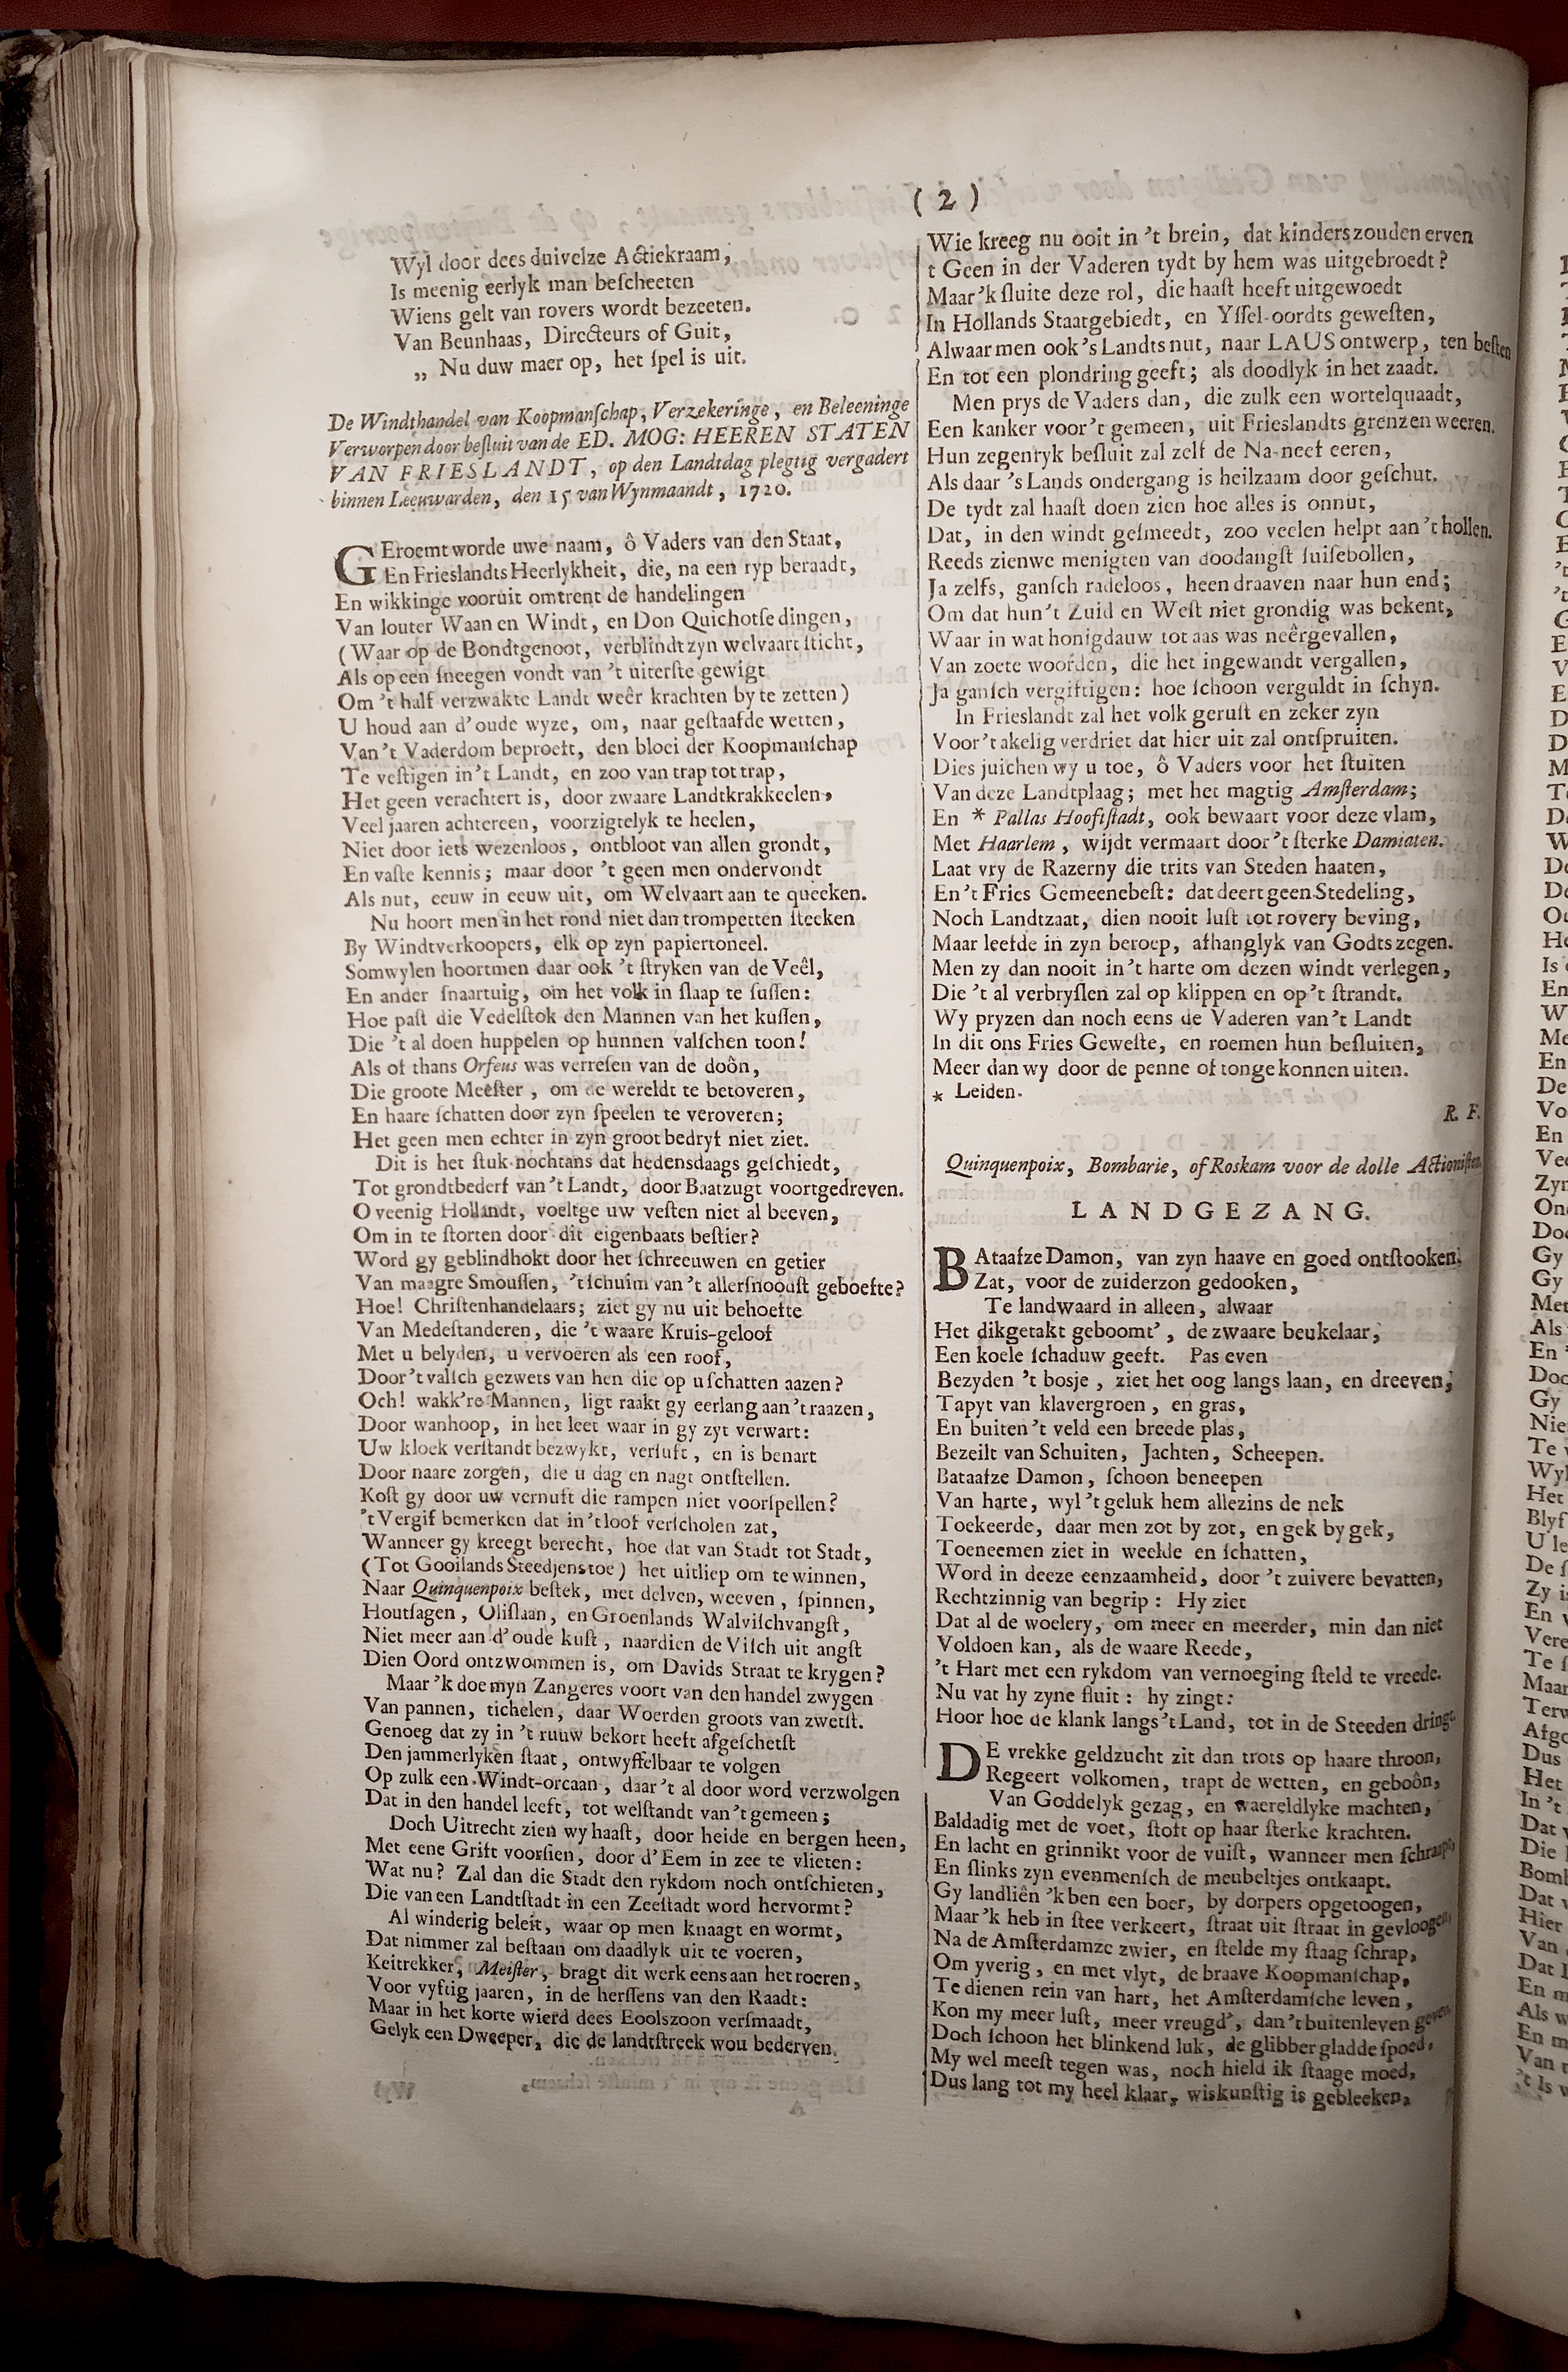 ( 2 )
Wyl door dees duivelze Actiekraam,
Is meenig eerlyk man beſcheeten
Wiens gelt van rovers wordt bezeeten.
Van Beunhaas, Directeurs of Guit,
„ Nu duw maer op, het ſpel is uit.
De Windthandel van Koopmanſchap, Verzekeringe, en Beleeninge
Verworpen door beſluit van de ED. MOG: HEEREN STATEN
VAN FRIESLANDT, op den Landtdag plegtig vergadert
binnen Leeuwarden, den 15 van Wynmaandt, 1720.
GEroemt worde uwe naam, ô Vaders van den Staat,
En Frieslandts Heerlykheit, die, na een ryp beraadt,
En wikkinge vooruit omtrent de handelingen
Van louter Waan en Windt, en Don Quichotſe dingen,
(Waar op de Bondtgenoot, verblindt zyn welvaart ſticht,
Als op een ſneegen vondt van 't uiterſte gewigt
Om 't half verzwakte Landt weêr krachten by te zetten)
U houd aan d'oude wyze, om, naar geſtaafde wetten,
Van 't Vaderdom beproeft, den bloei der Koopmanſchap
Te veſtigen in 't Landt, en zoo van trap tot trap,
Het geen verachtert is, door zwaare Landtkrakkeelen,
Veel jaaren achtereen, voorzigtelyk te heelen,
Niet door iets wezenloos, ontbloot van allen grondt,
En vaſte kennis; maar door 't geen men ondervondt
Als nut, eeuw in eeuw uit, om Welvaart aan te queeken.
Nu hoort men in het rond niet dan trompetten ſteeken
By Windtverkoopers, elk op zyn papiertoneel.
Somwylen hoortmen daar ook 't ſtryken van de Veêl,
En ander ſnaartuig, om het volk in ſlaap te ſuſſen:
Hoe paſt die Vedelſtok den Mannen van het kuſſen,
Die 't al doen huppelen op hunnen valſchen toon!
Als of thans Orfeus was verreſen van de doôn,
Die groote Meeſter, om de wereldt te betoveren,
En haare ſchatten door zyn ſpeelen te veroveren;
Het geen men echter in zyn groot bedryf niet ziet.
Dit is het ſtuk nochtans dat hedensdaags geſchiedt,
Tot grondtbederf van 't Landt, door Baatzugt voortgedreven.
O veenig Hollandt, voeltge uw veſten niet al beeven,
Om in te ſtorten door dit eigenbaats beſtier?
Word gy geblindhokt door het ſchreeuwen en getier
Van maagre Smouſſen, 't ſchuim van 't allerſnooduſt geboefte?
Hoe! Chriſtenhandelaars; ziet gy nu uit behoefte
Van Medeſtanderen, die 't waare Kruis-geloof
Met u belyden, u vervoeren als een roof,
Door 't valſch gezwets van hen die op u ſchatten aazen?
Och! wakk're Mannen, ligt raakt gy eerlang aan 't raazen,
Door wanhoop, in het leet waar in gy zyt verwart:
Uw kloek verſtandt bezwykt, verſuft, en is benart
Door naare zorgen, die u dag en nagt ontſtellen.
Koſt gy door uw vernuft die rampen niet voorſpellen?
't Vergif bemerken dat in 't loof verſcholen zat,
Wanneer gy kreegt berecht, hoe dat van Stadt tot Stadt,
(Tot Gooilands Steedjens toe) het uitliep om te winnen,
Naar Quinquenpoix beſtek, met delven, weeven, ſpinnen,
Houtſagen, Oliſlaan, en Groenlands Walviſchvangſt,
Niet meer aan d'oude kuſt, naardien de Viſch uit angſt
Dien Oord ontzwommen is, om Davids Straat te krygen?
Maar 'k doe myn Zangeres voort van den handel zwygen
Van pannen, tichelen, daar Woerden groots van zwetſt.
Genoeg dat zy in 't ruuw bekort heeft afgeſchetſt
Den jammerlyken ſtaat, ontwyffelbaar te volgen
Op zulk een Windt-orcaan, daar 't al door word verzwolgen
Dat in den handel leeft, tot welſtandt van 't gemeen;
Doch Uitrecht zien wy haaſt, door heide en bergen heen,
Met eene Grift voorſien, door d'Eem in zee te vlieten:
Wat nu? Zal dan die Stadt den rykdom noch ontſchieten,
Die van een Landtſtadt in een Zeeſtadt word hervormt?
Al winderig beleit, waar op men knaagt en wormt,
Dat nimmer zal beſtaan om daadlyk uit te voeren,
Keitrekker, Meiſter, bragt dit werk eens aan het roeren,
Voor vyftig jaaren, in de herſſens van den Raadt:
Maar in het korte wierd dees Eoolszoon verſmaadt,
Gelyk een Dweeper, die de landtſtreek wou bederven.
Wie kreeg nu ooit in 't brein, dat kinders zouden erven
t Geen in der Vaderen tydt by hem was uitgebroedt?
Maar 'k ſluite deze rol, die haaſt heeft uitgewoedt
In Hollands Staatgebiedt, en Yſſel-oordts geweſten,
Alwaar men ook 's Landts nut, naar LAUS ontwerp, ten beſten
En tot een plondring geeft; als doodlyk in het zaadt.
Men prys de Vaders dan, die zulk een wortelquaadt,
Een kanker voor 't gemeen, uit Frieslandts grenzen weeren.
Hun zegenryk beſluit zal zelf de Na-neef eeren,
Als daar 's Lands ondergang is heilzaam door geſchut.
De tydt zal haaſt doen zien hoe alles is onnut,
Dat, in den windt geſmeedt, zoo veelen helpt aan 't hollen.
Reeds zienwe menigten van doodangſt ſuiſebollen,
Ja zelfs, ganſch radeloos, heen draaven naar hun end;
Om dat hun 't Zuid en Weſt niet grondig was bekent,
Waar in wat honigdauw tot aas was neêrgevallen,
Van zoete woorden, die het ingewandt vergallen,
Ja ganſch vergiftigen: hoe ſchoon verguldt in ſchyn.
In Frieslandt zal het volk geruſt en zeker zyn
Voor 't akelig verdriet dat hier uit zal ontſpruiten.
Dies juichen wy u toe, ô Vaders voor het ſtuiten
Van deze Landtplaag; met het magtig Amſterdam;
En * Pallas Hooftſtadt, ook bewaart voor deze vlam,
Met Haarlem, wijdt vermaart door 't ſterke Damiaten.
Laat vry de Razerny die trits van Steden haaten,
En 't Fries Gemeenebeſt: dat deert geen Stedeling,
Noch Landtzaat, dien nooit luſt tot rovery beving,
Maar leefde in zyn beroep, afhanglyk van Godts zegen.
Men zy dan nooit in 't harte om dezen windt verlegen,
Die 't al verbryſlen zal op klippen en op 't ſtrandt.
Wy pryzen dan noch eens de Vaderen van 't Landt
In dit ons Fries Geweſte, en roemen hun beſluiten,
Meer dan wy door de penne of tonge konnen uiten.
* Leiden.
R. F.
Quinquenpoix, Bombarie, of Roskam voor de dolle Actioniſten.
LANDGEZANG.
BAtaafze Damon, van zyn haave en goed ontſtooken,
Zat, voor de zuiderzon gedooken,
Te landwaard in alleen, alwaar
Het dikgetakt geboomt', de zwaare beukelaar,
Een koele ſchaduw geeft. Pas even
Bezyden 't bosje, ziet het oog langs laan, en dreeven,
Tapyt van klavergroen, en gras,
En buiten 't veld een breede plas,
Bezeilt van Schuiten, Jachten, Scheepen.
Bataafze Damon, ſchoon beneepen
Van harte, wyl 't geluk hem allezins de nek
Toekeerde, daar men zot by zot, en gek by gek,
Toeneemen ziet in weelde en ſchatten,
Word in deeze eenzaamheid, door 't zuivere bevatten,
Rechtzinnig van begrip: Hy ziet
Dat al de woelery, om meer en meerder, min dan niet
Voldoen kan, als de waare Reede,
't Hart met een rykdom van vernoeging ſteld te vreede.
Nu vat hy zyne fluit: hy zingt:
Hoor hoe de klank langs 't Land, tot in de Steeden dringt.
DE vrekke geldzucht zit dan trots op haare throon,
Regeert volkomen, trapt de wetten, en geboôn,
Van Goddelyk gezag, en waereldlyke machten,
Baldadig met de voet, ſtoft op haar ſterke krachten.
En lacht en grinnikt voor de vuiſt, wanneer men ſchraapt,
En ſlinks zyn evenmenſch de meubeltjes ontkaapt.
Gy landliên 'k ben een boer, by dorpers opgetoogen,
Maar 'k heb in ſtee verkeert, ſtraat uit ſtraat in gevloogen,
Na de Amſterdamze zwier, en ſtelde my ſtaag ſchrap,
Om yverig, en met vlyt, de braave Koopmanſchap,
Te dienen rein van hart, het Amſterdamſche leven,
Kon my meer luſt, meer vreugd', dan 't buitenleven geven.
Doch ſchoon het blinkend luk, de glibber gladde ſpoed,
My wel meeſt tegen was, noch hield ik ſtaage moed,
Dus lang tot my heel klaar, wiskunſtig is gebleeken,